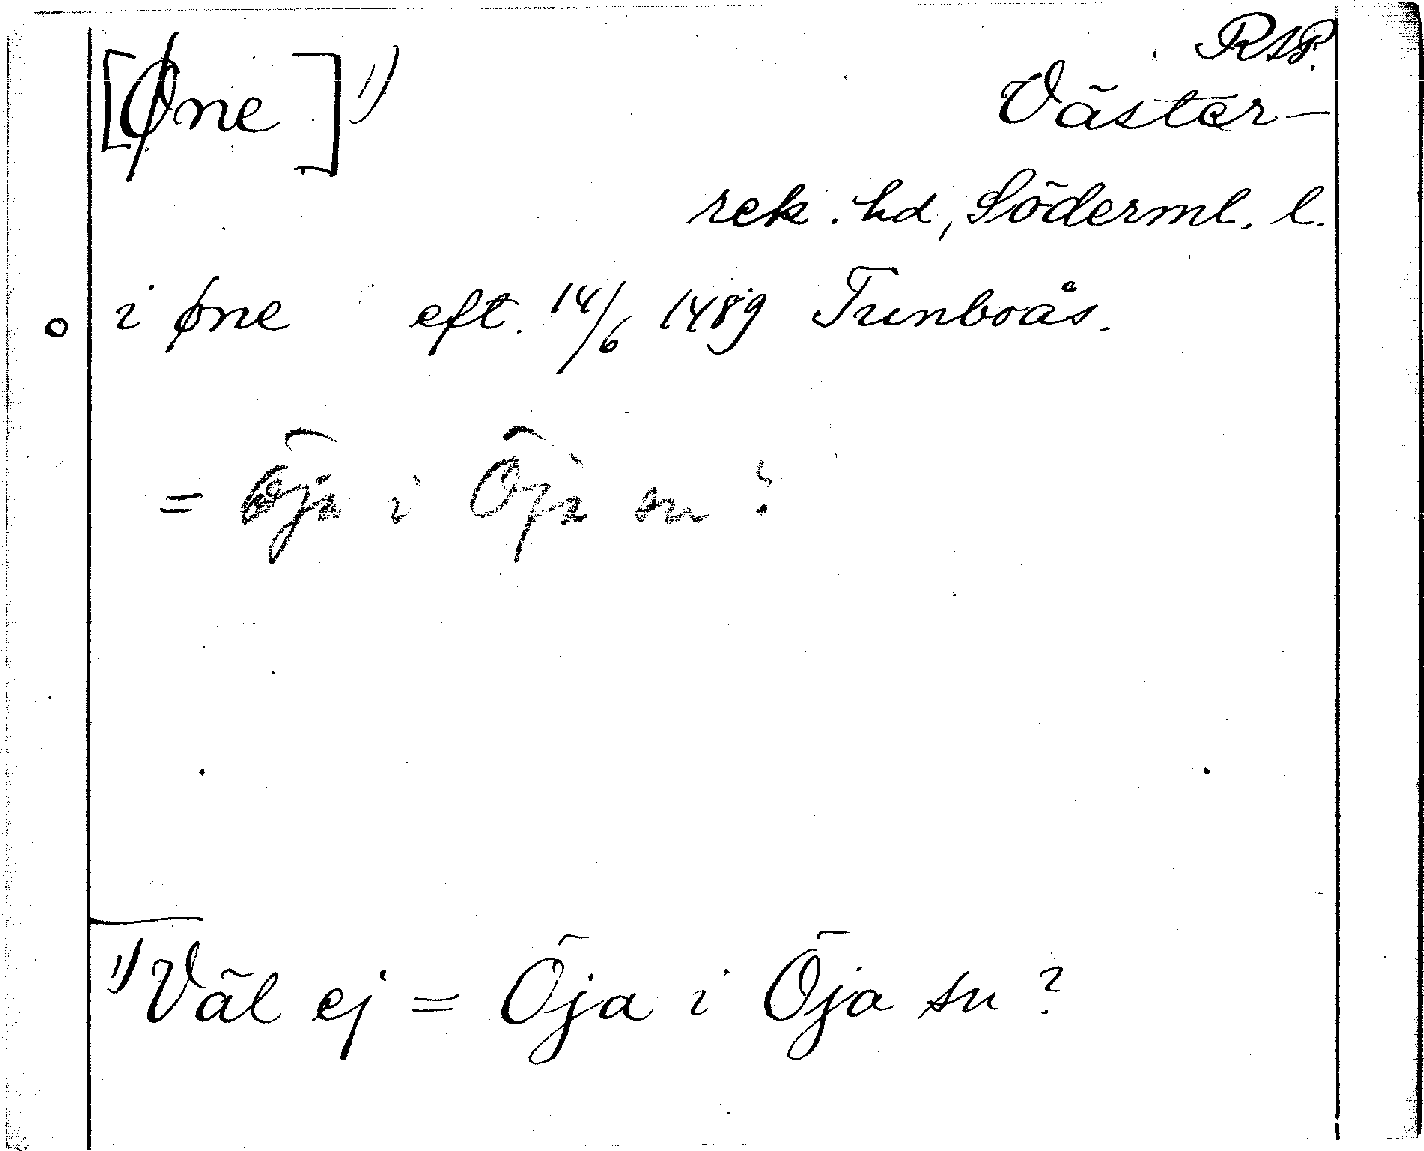 [Øne]¹⁾
Väster-
rek. hd, Söderml. l.
i øne eft. 14/6 1489 Tunboås.
= Öja i Öja sn ?
¹⁾ Väl ej = Öja i Öja sn ?